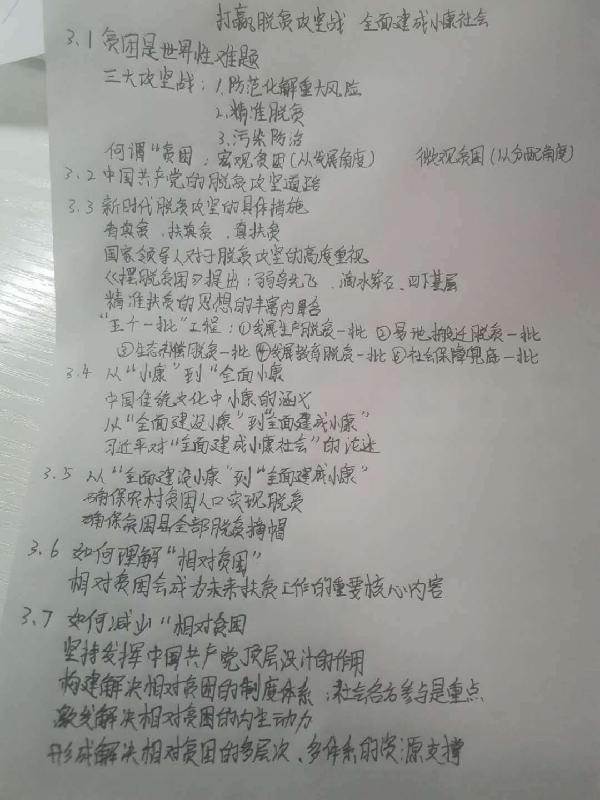 打赢脱贫攻坚战 全面建成小康社会
3.1 贫困是世界性难题
三大攻坚战：1.防范化解重大风险
2.精准脱贫
3.污染防治
何谓“贫困：宏观贫困(从发展角度) 微观贫困(从分配角度)
3.2 中国共产党的脱贫攻坚道路
3.3 新时代脱贫攻坚的具体措施
看真贫、扶真贫、真扶贫
国家领导人对于脱贫攻坚的高度重视
《摆脱贫困》提出：弱鸟先飞、滴水穿石、四下基层
精准扶贫的思想的丰富内含
“五个一批”工程：①发展生产脱贫一批 ②易地搬迁脱贫一批
③生态补偿脱贫一批 ④发展教育脱贫一批 ⑤社会保障兜底一批
3.4 从“小康”到“全面小康
中国传统文化中小康的涵义
从“全面建设小康”到“全面建成小康”
习近平对“全面建成小康社会”的论述
3.5 从“全面建设小康”到“全面建成小康”
确保农村贫困人口实现脱贫
确保贫困县全部脱贫摘帽
3.6 如何理解“相对贫困”
相对贫困会成为未来扶贫工作的重要核心内容
3.7 如何减少“相对贫困
坚持发挥中国共产党顶层设计的作用
构建解决相对贫困的制度体系：社会各方参与是重点
激发解决相对贫困的内生动力
形成解决相对贫困的多层次、多体系的资源支撑